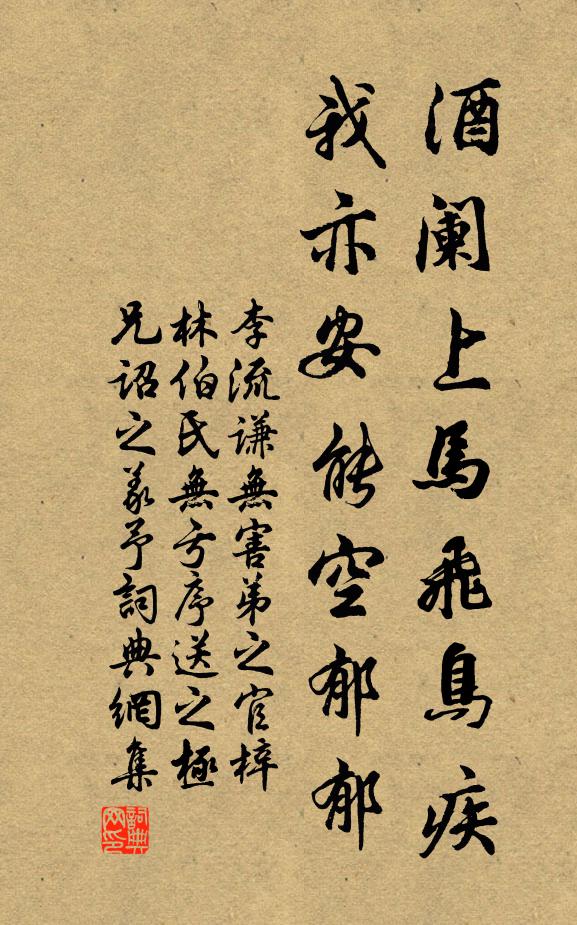 酒阑上馬飛鳥疾
我亦安能空郁郁
李流謙無害弟之官梓
林伯氏無亏序送之極
兄詔之義予詞典網集
詞典網印